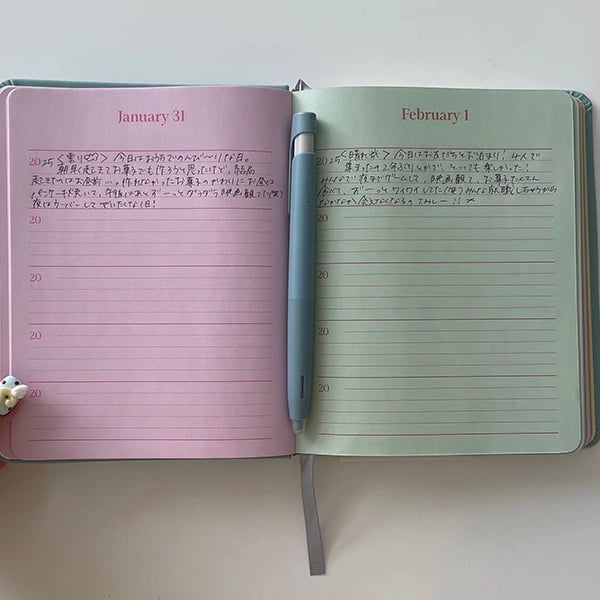 January 31
2025 <曇り> 今日はおうちでのんび〜りな日。
朝早く起きてお菓子でも作ろうと思ったけど、結局
起きたのはお昼前…。作れなかったお菓子のかわりにお昼は
パンケーキ焼いて、午後はあとずーっとダラダラ映画観てた(笑)
夜はウーバーしてぜいたくな日!
20
20
20
20
February 1
2025 <晴れ> 今日はお友だちとお泊まり! 4人で
集まったの2年ぶりとかで、とっても楽しかった!
みんなで夜までゲームして、映画観て、お菓子たくさん
食べて、ずーっとワイワイしてた(笑) みんな就職しちゃうから
なかなか会えなくなるのさみしー!!
20
20
20
20